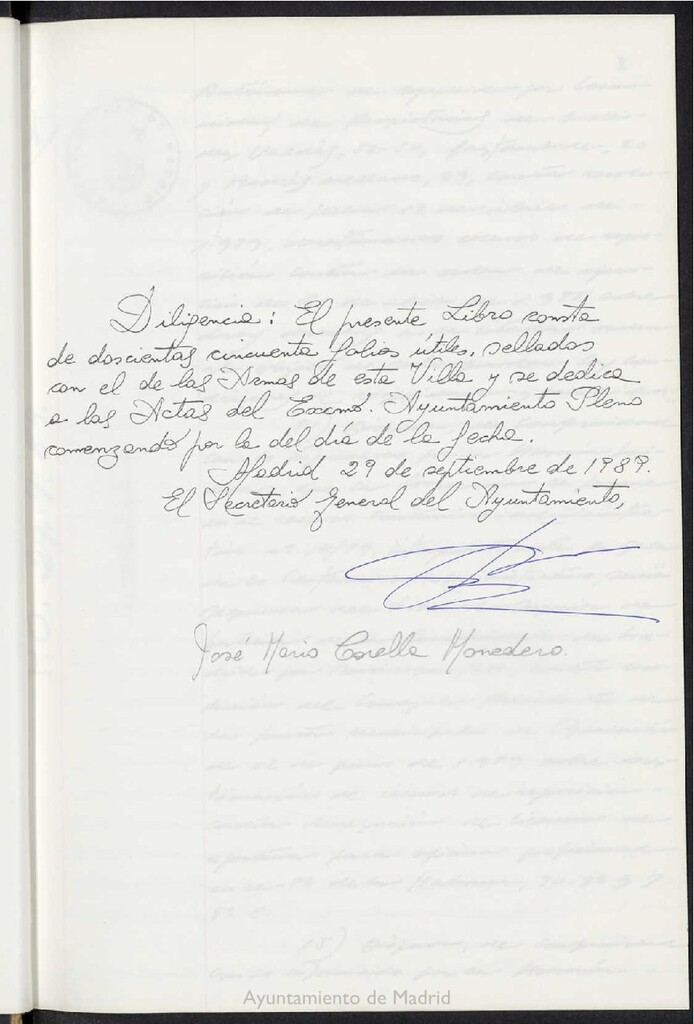 Diligencia: El presente Libro consta
de doscientas cincuenta folios útiles, sellados
con el de las Armas de esta Villa y se dedica
a las Actas del Excmo. Ayuntamiento Pleno
comenzando por la del día de la fecha.
Madrid 29 de septiembre de 1989.
El Secretario General del Ayuntamiento,
José Mario Corella Monedero.
Ayuntamiento de Madrid